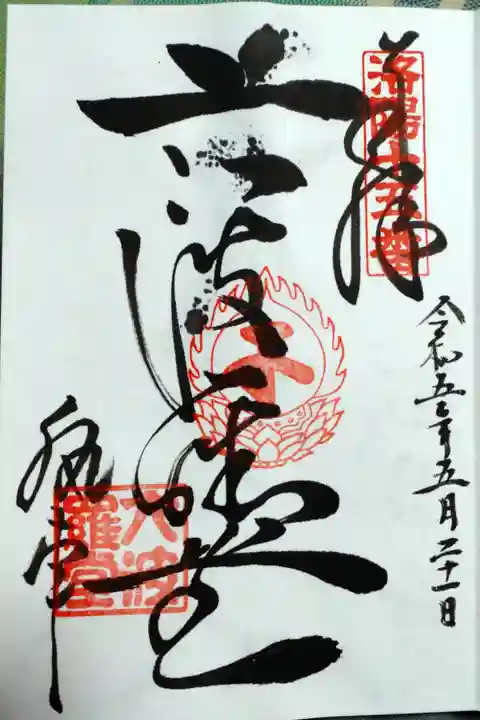 奉拝
洛陽十五番
令和五年五月二十一日
六波羅堂
六波
羅堂